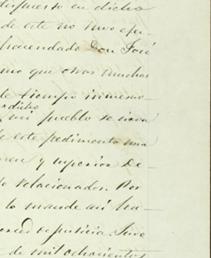 dispuesto en dicho
de este no tuvo efec-
hacendado Don José
mo que otras muchas
de tiempo inmemo-
dicho
mi pueblo se sirva
de este pedimento una
men y superior De-
to relacionados. Por
lo mande asi ha-
merced y justicia. Juro
de mil ochocientos